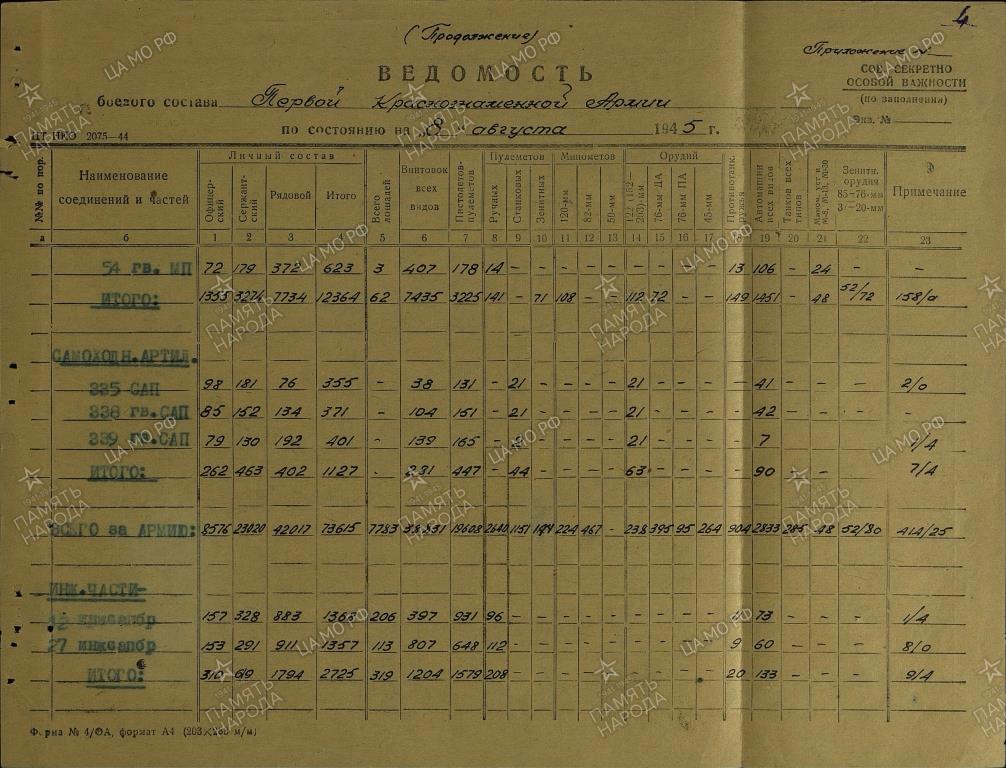 4
(Продолжение)
Приложение №
ВЕДОМОСТЬ
СОВ. СЕКРЕТНО
ОСОБОЙ ВАЖНОСТИ
(по заполнении)
Экз. №
боевого состава Первой Краснознаменной Армии
ЦТ НКО 2075—44
по состоянию на 8 августа 1945 г.
№№ по пор. Наименование соединений и частей Личный состав Офицерский Сержантский Рядовой Итого Всего лошадей Винтовок всех видов Пистолетов-пулеметов Пулеметов Ручных Станковых Зенитных Минометов 120-мм 82-мм 50-мм Орудий 122 (152—203)-мм 76-мм ДА 76-мм ПА 45-мм Противотанк. ружья Автомашин всех видов Танков всех типов Зенитн. орудия 85—76-мм 37—20-мм Примечание
а б 1 2 3 4 5 6 7 8 9 10 11 12 13 14 15 16 17 18 19 20 21 22 23
54 гв. МП 72 179 372 623 3 407 178 14 - - - - - - - - - 13 106 - 24 - -
ИТОГО: 1355 3274 7734 12364 62 7435 3225 141 - 71 108 - - 112 72 - - 149 1451 - 48 52/72 158/0
САМОХОДН.АРТИЛ.
335 САП 98 181 76 355 - 38 131 - 21 - - - - 21 - - - - 41 - - - 2/0
338 гв.САП 85 152 134 371 - 104 151 - 21 - - - - 21 - - - - 42 - - - -
339 гв.САП 79 130 192 401 - 139 165 - - - - - 21 - - - - 7 - - /4
ИТОГО: 262 463 402 1127 - 281 447 - 44 - - - - 63 - - - - 90 - - 7/4
ВСЕГО за АРМИЮ: 8576 23020 42017 73615 7783 38831 19608 2640 1151 194 224 467 - 238 395 95 264 904 2833 285 48 52/80 414/25
ИНЖ.ЧАСТИ-
12 инжсапбр 157 328 883 1368 206 397 931 96 - - - - - - - - - 11 73 - - - 1/4
27 инжсапбр 153 291 911 1357 113 807 648 112 - - - - - - - - - 9 60 - - - 8/0
ИТОГО: 310 619 1794 2725 319 1204 1579 208 - - - - - - - - - 20 133 - - - 9/4
Форма № 4/ОА, формат А4 (203×288 м/м)